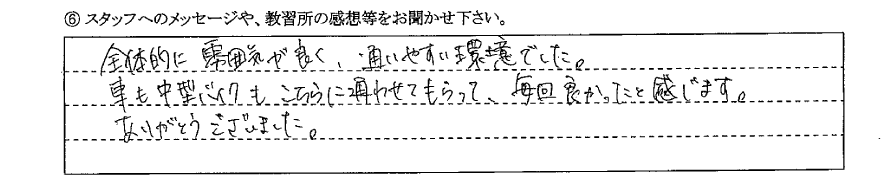 ⑥ スタッフへのメッセージや、教習所の感想等をお聞かせ下さい。
全体的に雰囲気が良く、通いやすい環境でした。
車も中型バイクもこちらに通わせてもらって、毎回良かったと感じます。
ありがとうございました。